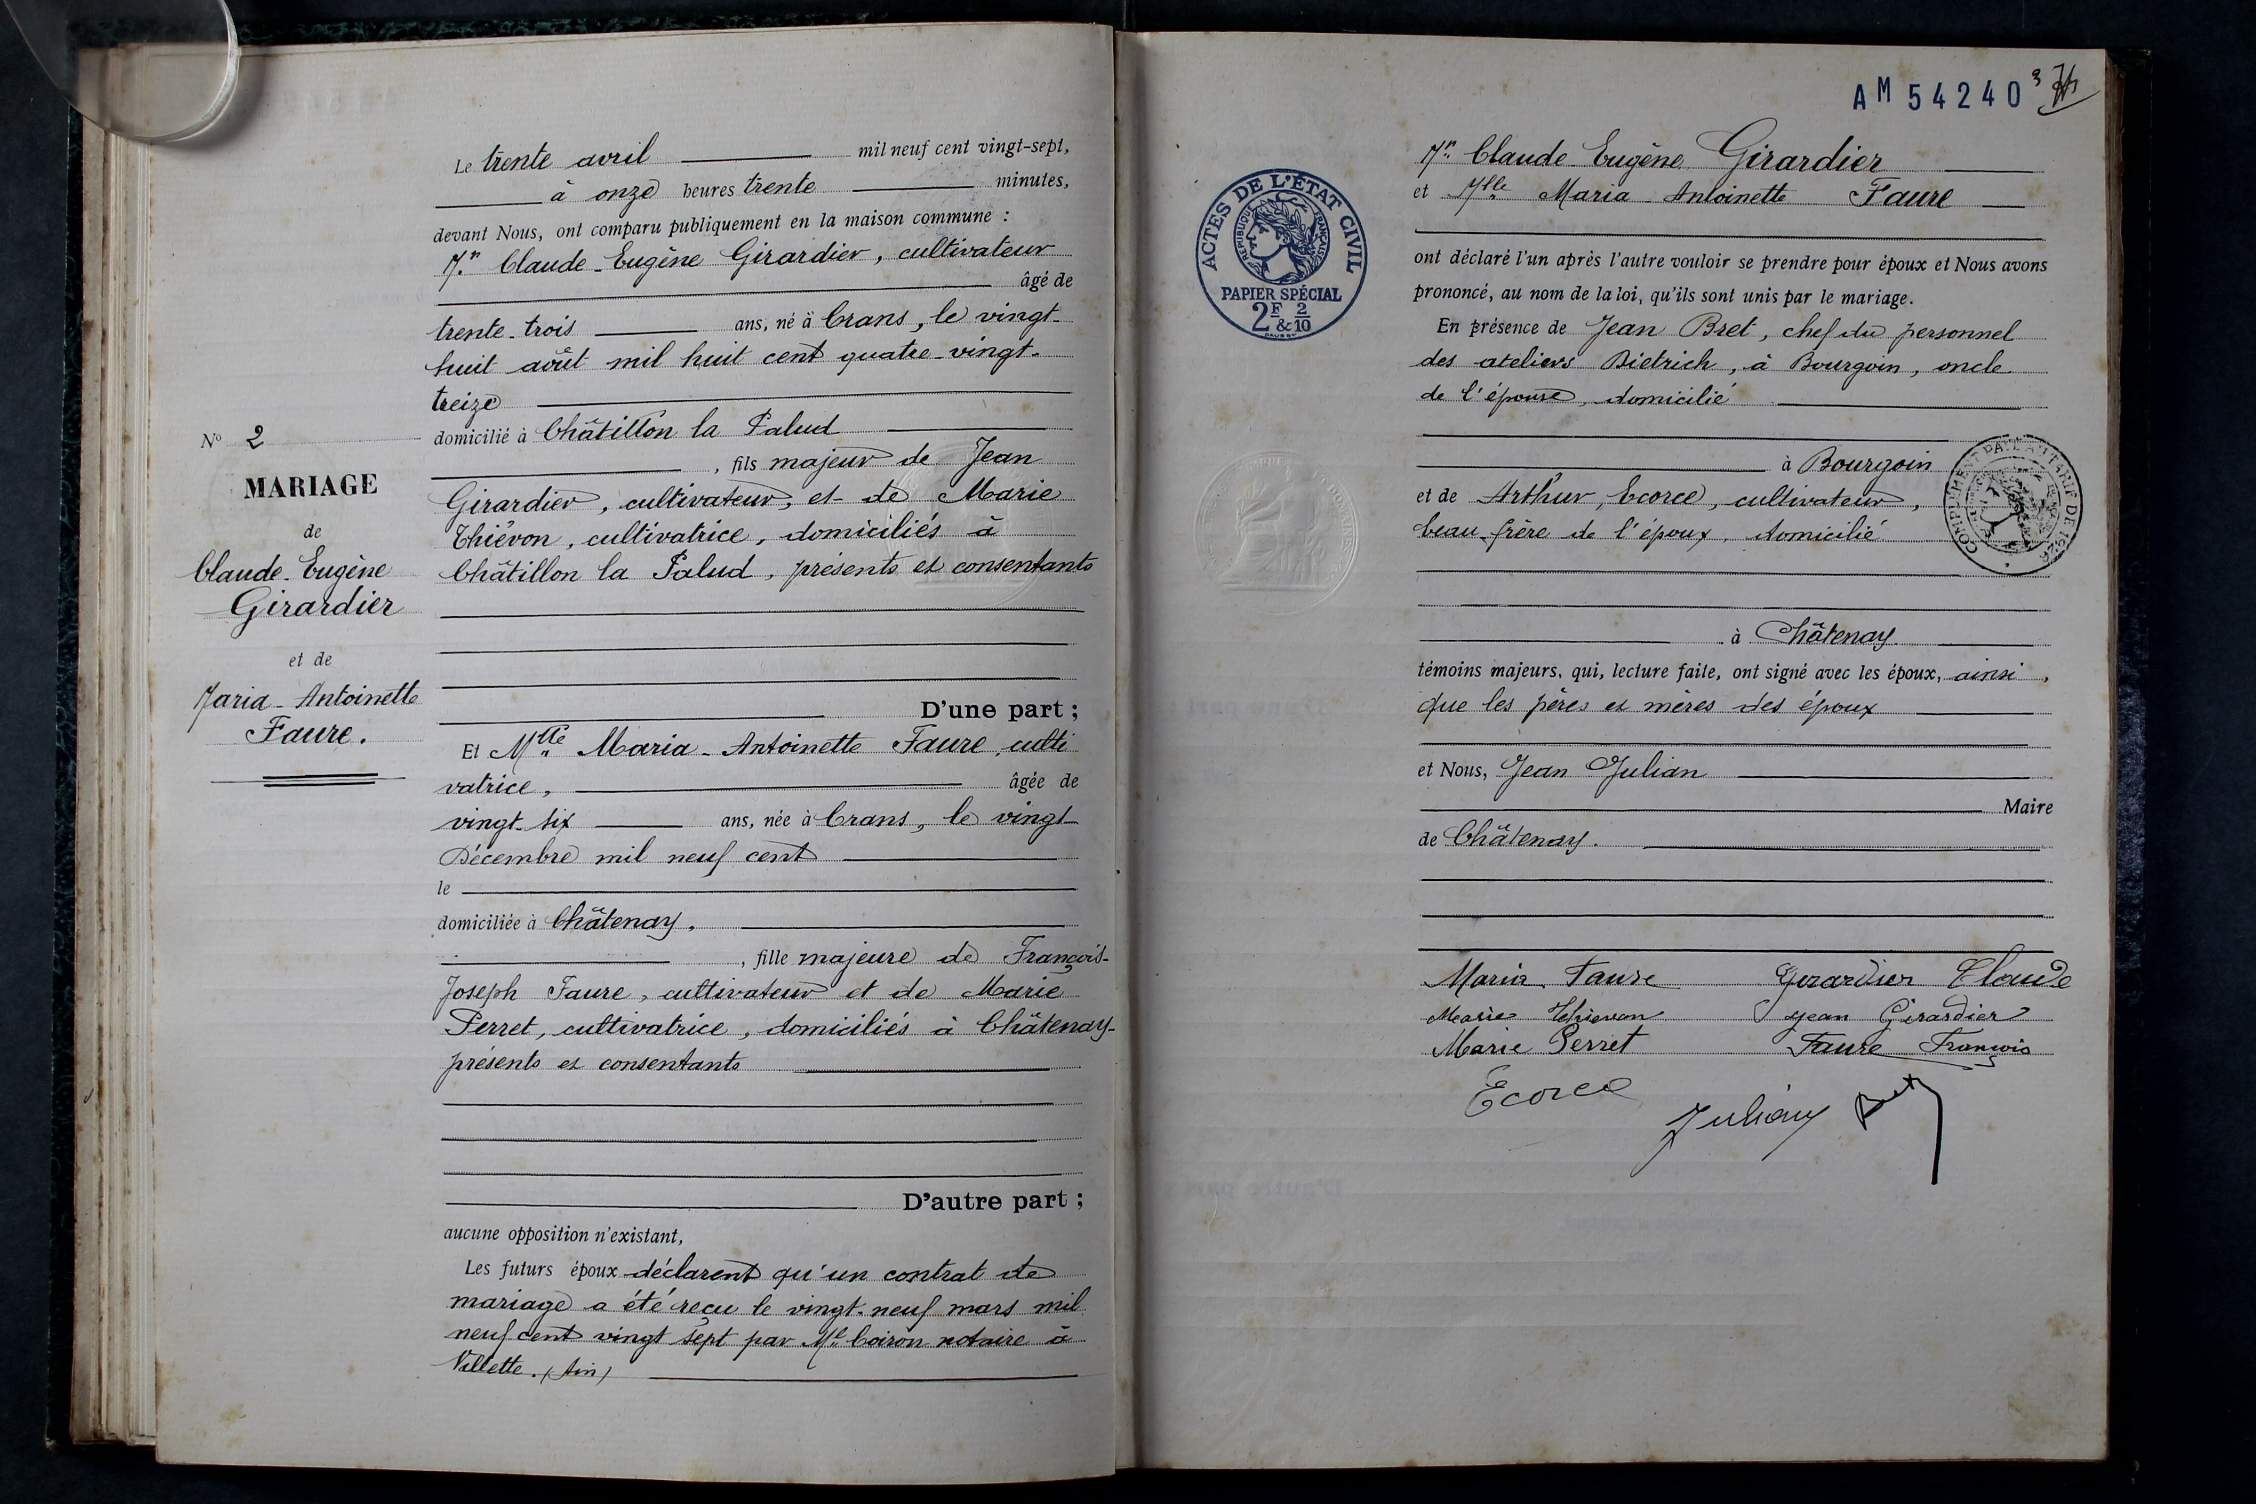 Le trente avril mil neuf cent vingt-sept,
à onze heures trente minutes,
devant Nous, ont comparu publiquement en la maison commune :
Mr. Claude-Eugène Girardier, cultivateur
âgé de
trente-trois ans, né à Crans, le vingt-
huit août mil huit cent quatre-vingt-
treize
domicilié à Châtillon la Palud
, fils majeur de Jean
Girardier, cultivateur, et de Marie
Thiévon, cultivatrice, domiciliés à
Châtillon la Palud, présents et consentants
D'une part ;
Et Mlle Maria-Antoinette Faure, culti
vatrice, âgée de
vingt-six ans, née à Crans, le vingt
Décembre mil neuf cent
le
domiciliée à Châtenay.
, fille majeure de François-
Joseph Faure, cultivateur et de Marie
Perret, cultivatrice, domiciliés à Châtenay-
présents et consentants
D'autre part ;
aucune opposition n'existant,
Les futurs époux déclarent qu'un contrat de
mariage a été reçu le vingt-neuf mars mil
neuf cent vingt sept par Me Coiron notaire à
Villette. (Ain)
No 2
MARIAGE
de
Claude-Eugène
Girardier
et de
Maria-Antoinette
Faure.
AM 54240
3
ACTES DE L'ÉTAT CIVIL
RÉPUBLIQUE FRANÇAISE
PAPIER SPÉCIAL
2F & 2/10
Mr. Claude Eugène Girardier
et Mlle Maria Antoinette Faure
ont déclaré l'un après l'autre vouloir se prendre pour époux et Nous avons
prononcé, au nom de la loi, qu'ils sont unis par le mariage.
En présence de Jean Bret, chef du personnel
des ateliers Diétrich, à Bourgoin, oncle
de l'épouse, domicilié
à Bourgoin
et de Arthur, Ecorce, cultivateur,
beau-frère de l'époux, domicilié
COMPLÉMENT DU TARIF DE 1926
à Châtenay
témoins majeurs, qui, lecture faite, ont signé avec les époux, ainsi,
que les pères et mères des époux
et Nous, Jean Julian
Maire
de Châtenay.
Maria Faure Girardier Claude
Marie Thievon Jean Girardier
Marie Perret Faure François
Ecorce
Julian Bret